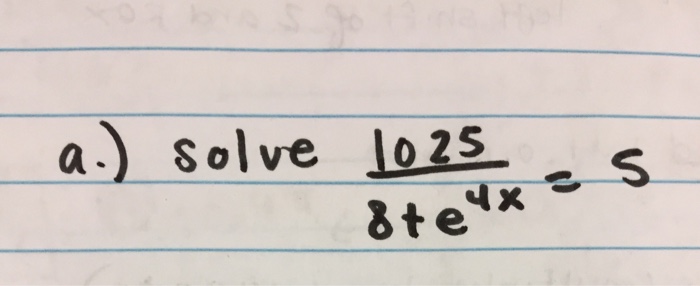 a.) solve 1025/(8+e^4x) = 5